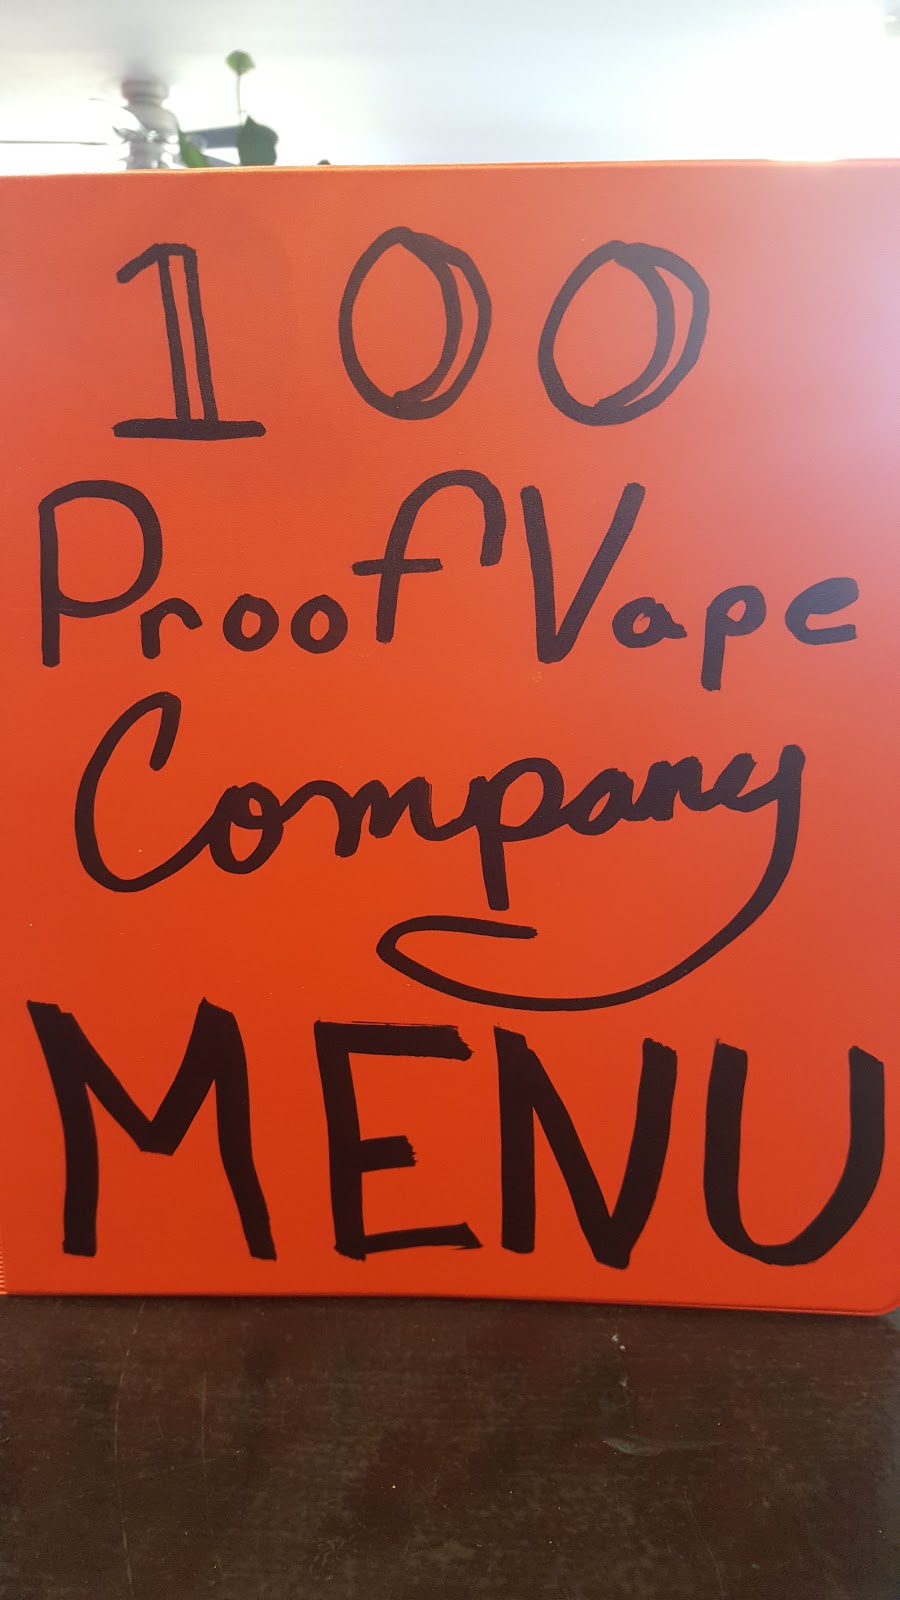 100
Proof Vape
Company
MENU